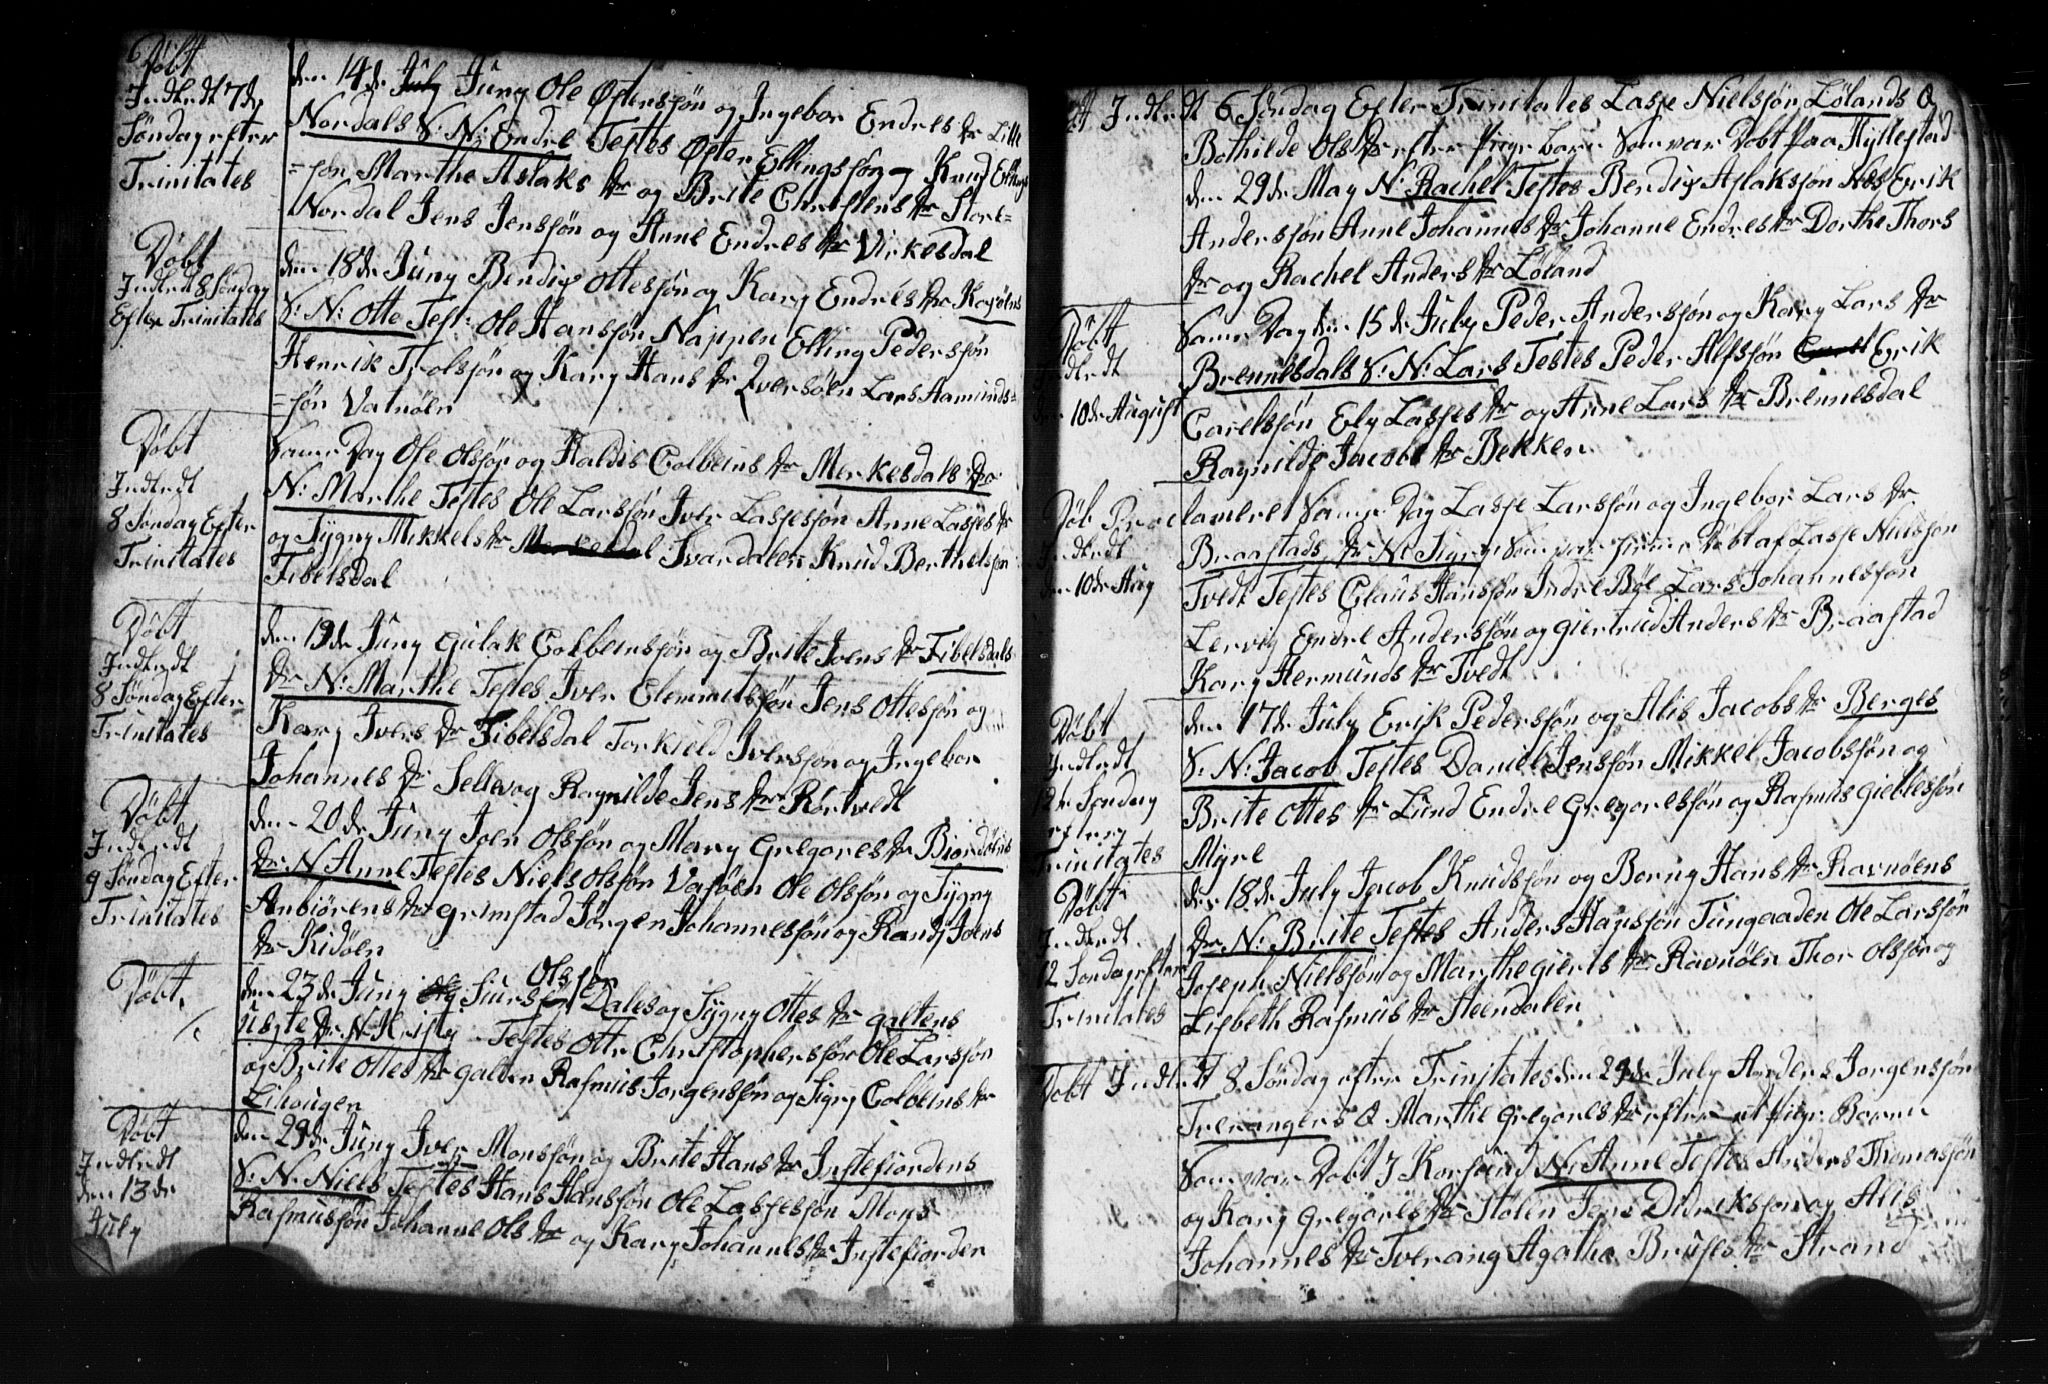 6
Døbt
Indledt 7de
Søndag efter
Trinitates
den 14de July Juny Ole Østensøn og Ingebor Endres dtr Lille
Nordals S: N: Endre Testes Østen Ellingssøn og Knud Ellings
=søn Marthe Aslaks dtr og Brite Christens dtr Store=
Nordal Jens Jenssøn og Anne Endres dtr Virkesdal
Døbt
Indledt 8 Søndag
Efter Trinitates
den 18de Juny Bendix Ottesøn og Kary Endres dtr
S: N: Otte Test: Ole Hanssøn Nappen Elling Pedersøn
Henrik Trolsøn og Kary Hans dtr Lars Aamunds=
=søn Vatnøen
Døbt
Indledt
8 Søndag Efter
Trinitates
Same Dag Ole Olssøn og Haldis Colbeins dtr Merkesdals dtr
N: Marthe Testes Ole Larssøn Iver Lassesøn Anne Lasses dtr
og Sygny Mikkels dtr Merkesdal Svardalen Knud Berthelssøn
Fibelsdal
Døbt
Indledt
8 Søndag Efter
Trinitates
den 19de Juny Gulak Colbeinssøn og Brite Joens dtr Fibelsdals
dtr N: Marthe Testes Iver Clemmetssøn Jens Ottesøn og
Kary Ivers dtr Fibelsdal Torkield Iverssøn og Ingebor
Johannes dtr Sellevog Ragnilde Jens dtr
Døbt
Indledt
9 Søndag Efter
Trinitates
den 20de Juny Joen Olssøn og Mary Gregores dtr
dtr: N Anne Testes Niels Olssøn Ole Olssøn og Sygny
Anbiørens dtr Grimstad Jørgen Johannessøn og Randj Joens
dtr Kidøen
Døbt
den 23de Juny Siurs Olssøn Dales og Sygny Ottes dtr Galtens
Uegte dtr N: Kristy Testes Otte Christophersøn Ole Larssøn
og Brite Ottes dtr Galten Rasmus Jorgenssøn og Sigry Colbeins dtr
Lihougen
Døbt
Indledt
den 13de
July
den 29de Juny Iver Monssøn og Brite Hans dtr Instefiordens
S: N: Niels Testes Hans Hanssøn Ole Lassesøn Mons
Rasmussøn Johanne Ols dtr og Kary Johannes dtr Instefiorden
Indledt 6 Søndag Efter Trinitates Lasse Nielssøn Lølands Q
Bothilde Ols dtr efter Pige barn Som var Døbt paa Hyllestad
den 29de May N: Rachel Testes Bendix Aslaksøn Erik
Anderssøn Anne Johannes dtr Johanne Endres dtr Dorthe Thors
dtr og Rachel Anders dtr Løland
Døbt
Indledt
den 10de August
Same Dag den 15de July Peder Anderssøn og Kary Lars dtr
Brennesdals S: N: Lars Testes Peder Alfssøn Erik
Carelssøn Ely Lasses dtr og Anne Lars dtr Brennesdal
Ragnilde Jacobs dtr Bekken
Døb
Indledt
den 10de Aug
Same Dag Lasse Larssøn og Ingebor Lars dtr
Braastads dtr N: Sigry Som var Døbt af Lasse Nielssøn
Tvedt Testes Claus Hanssøn Indre Bøe Lars Johannessøn
Lervig Endre Anderssøn og Giertrud Anders dtr Braastad
Kary Hermunds dtr Tvedt
Døbt
Indledt
12te Søndag
efter
Trinitates
den 17de July Erik Pederssøn og Alis Jacobs dtr Berges
S: N: Jacob Testes Daniel Jenssøn Mikkel Jacobssøn og
Brite Ottes dtr Lund Endre Gregoressøn og Rasmus Gieblesøn
Myre
Døbt
Indledt
12 Søndag efter
Trinitates
den 18de July Jacob Knudssøn og Borny Hans dtr Ravnøens
dtr N: Brite Testes Anders Hanssøn Tungaaden Ole Larssøn
Joseph Nielssøn og Marthe Gierts dtr Ravnøen Thor Olssøn og
Lisbeth Rasmus dtr Steendalen
Døbt Indledt 8 Søndag efter Trinitates den 29de July Anders Jorgenssøn
Tverangers Q Marthe Gregores dtr efter et Pige Barn
Som var Døbt I Korssund N: Anne Testes Anders Thomassøn
og Kary Gregores dtr Stølen Jens Didrikssøn og Alis
Johannes dtr Tverang Agathe Bruses dtr Strand